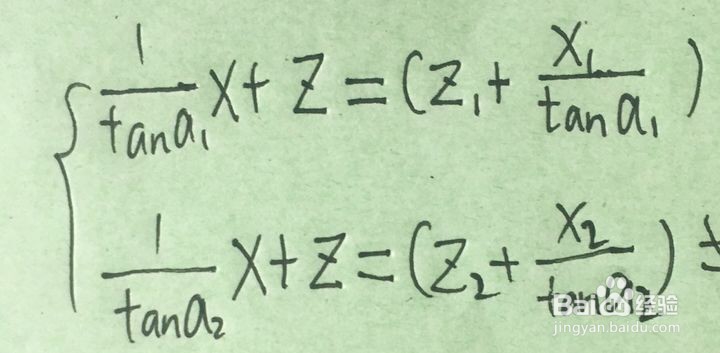 { 1/tan a₁ X + Z = (Z₁ + X₁/tan a₁)
1/tan a₂ X + Z = (Z₂ + X₂/tan a₂) ±
Baidu 经验
jingyan.baidu.com